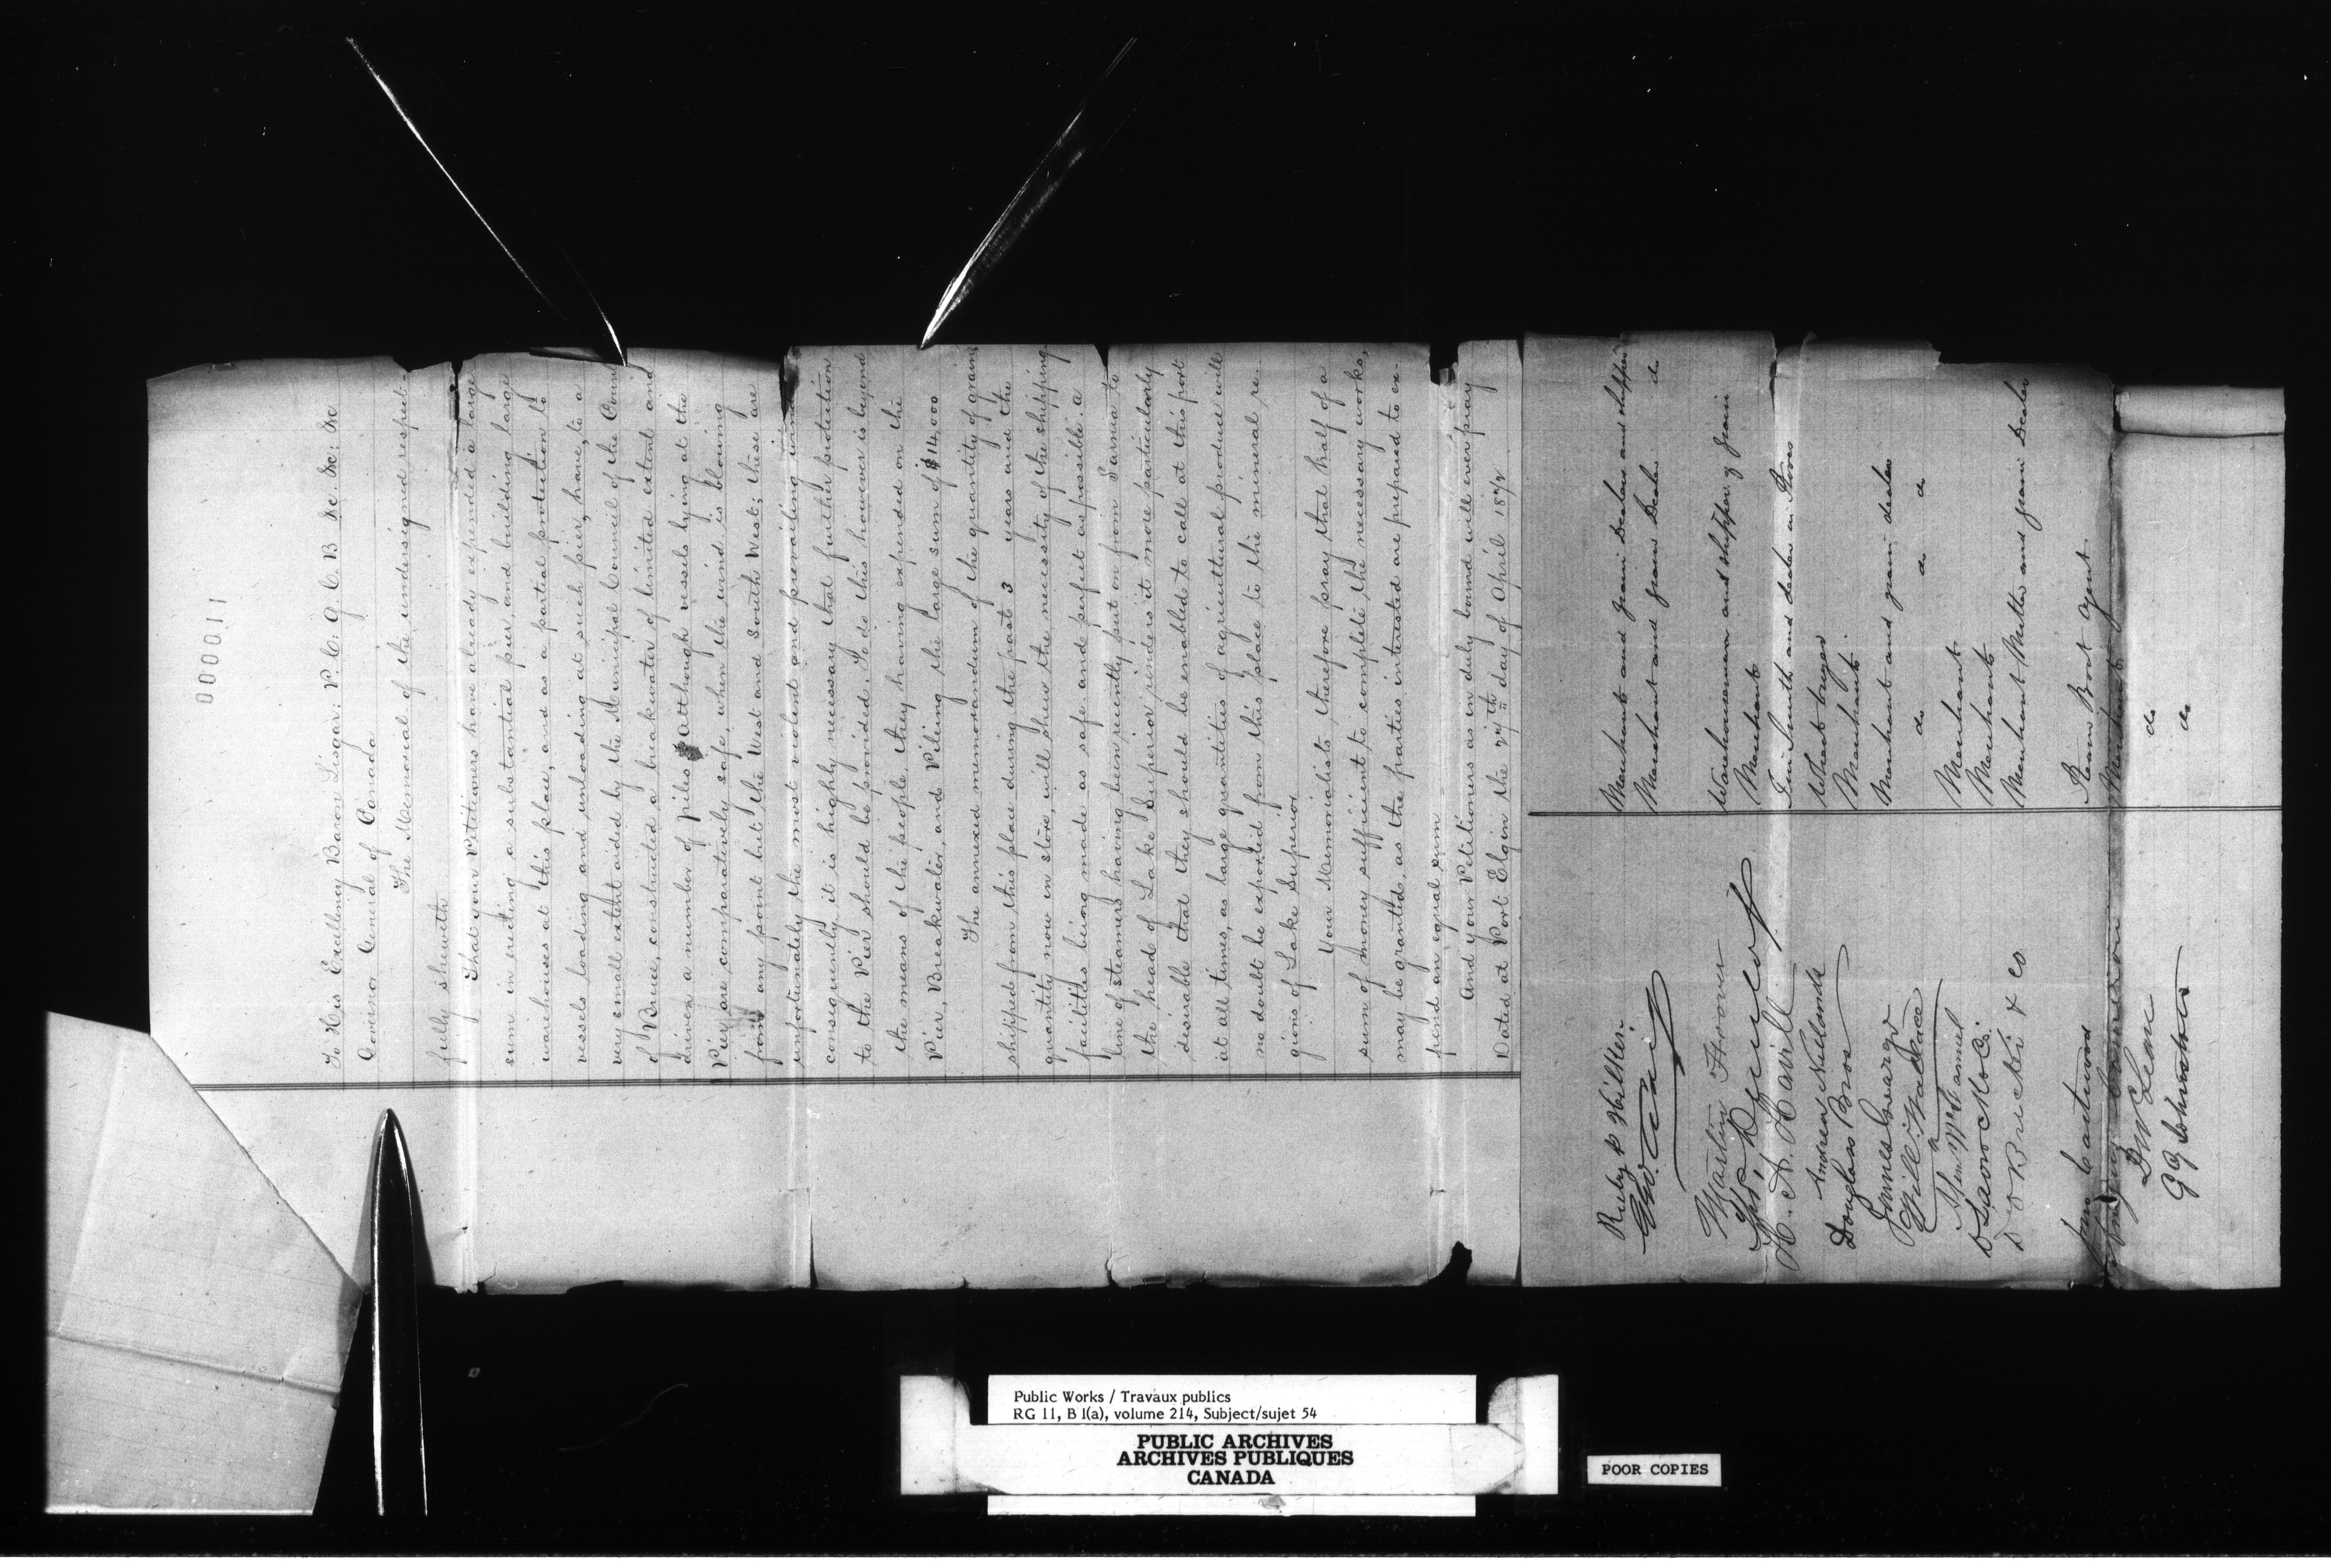 000011
To His Excellency Baron Lisgar: P. C: G. C. B &c. &c: &c
Governor General of Canada
The Memorial of the undersigned respect-
fully sheweth
That your Petitioners have already expended a large
sum in erecting a substantial pier, and building large
warehouses at this place, and as a partial protection to
vessels loading and unloading at such pier, have, to a
very small extent aided by the Municipal Council of the County
of Bruce, constructed a breakwater of limited extent and
driven a number of piles Although vessels lying at the
Pier are comparatively safe, when the wind is blowing
from any point but the West and South West; these are
unfortunately the most violent and prevailing winds
consequently it is highly necessary that further protection
to the Pier should be provided. To do this however is beyond
the means of the people, they having expended on the
Pier, Breakwater, and Piling the large sum of $14,000
The annexed memorandum of the quantity of grain
shipped from this place during the past 3 years and the
quantity now in store, will shew the necessity of the shipping
facilities being made as safe and perfect as possible. a
line of steamers having been recently put on from Sarnia to
the head of Lake Superior renders it more particularly
desirable that they should be enabled to call at this port
at all times, as large quantities of agricultural produce will
no doubt be exported from this place to the mineral re-
gions of Lake Superior
Your Memorialists therefore pray that half of a
sum of money sufficient to complete the necessary works,
may be granted, as the parties interested are prepared to ex-
pend an equal sum
And your Petitioners as in duly bound will ever pray
Dated at Port Elgin the 27th day of April 1872
Ruby & Hilker. Merchants and grain Dealers and shippers
Merchant and grain Dealer do
Martin Strover Warehouseman and shipper of grain
Merchant
H. A. Havill Tin Smith and dealer in Stoves
Andrew Wheat buyer
Douglass Bros Merchants
James George Merchant and grain dealer
Will. Wallace do do do
Merchant
Merchants
D & B & Co Merchant Millers and grain Dealers
Jno Eastwood Steam Boat Agent
Cameron Merchant
D McLean do
G G Johnston do
Public Works / Travaux publics
RG 11, B 1(a), volume 214, Subject/sujet 54
PUBLIC ARCHIVES
ARCHIVES PUBLIQUES
CANADA
POOR COPIES